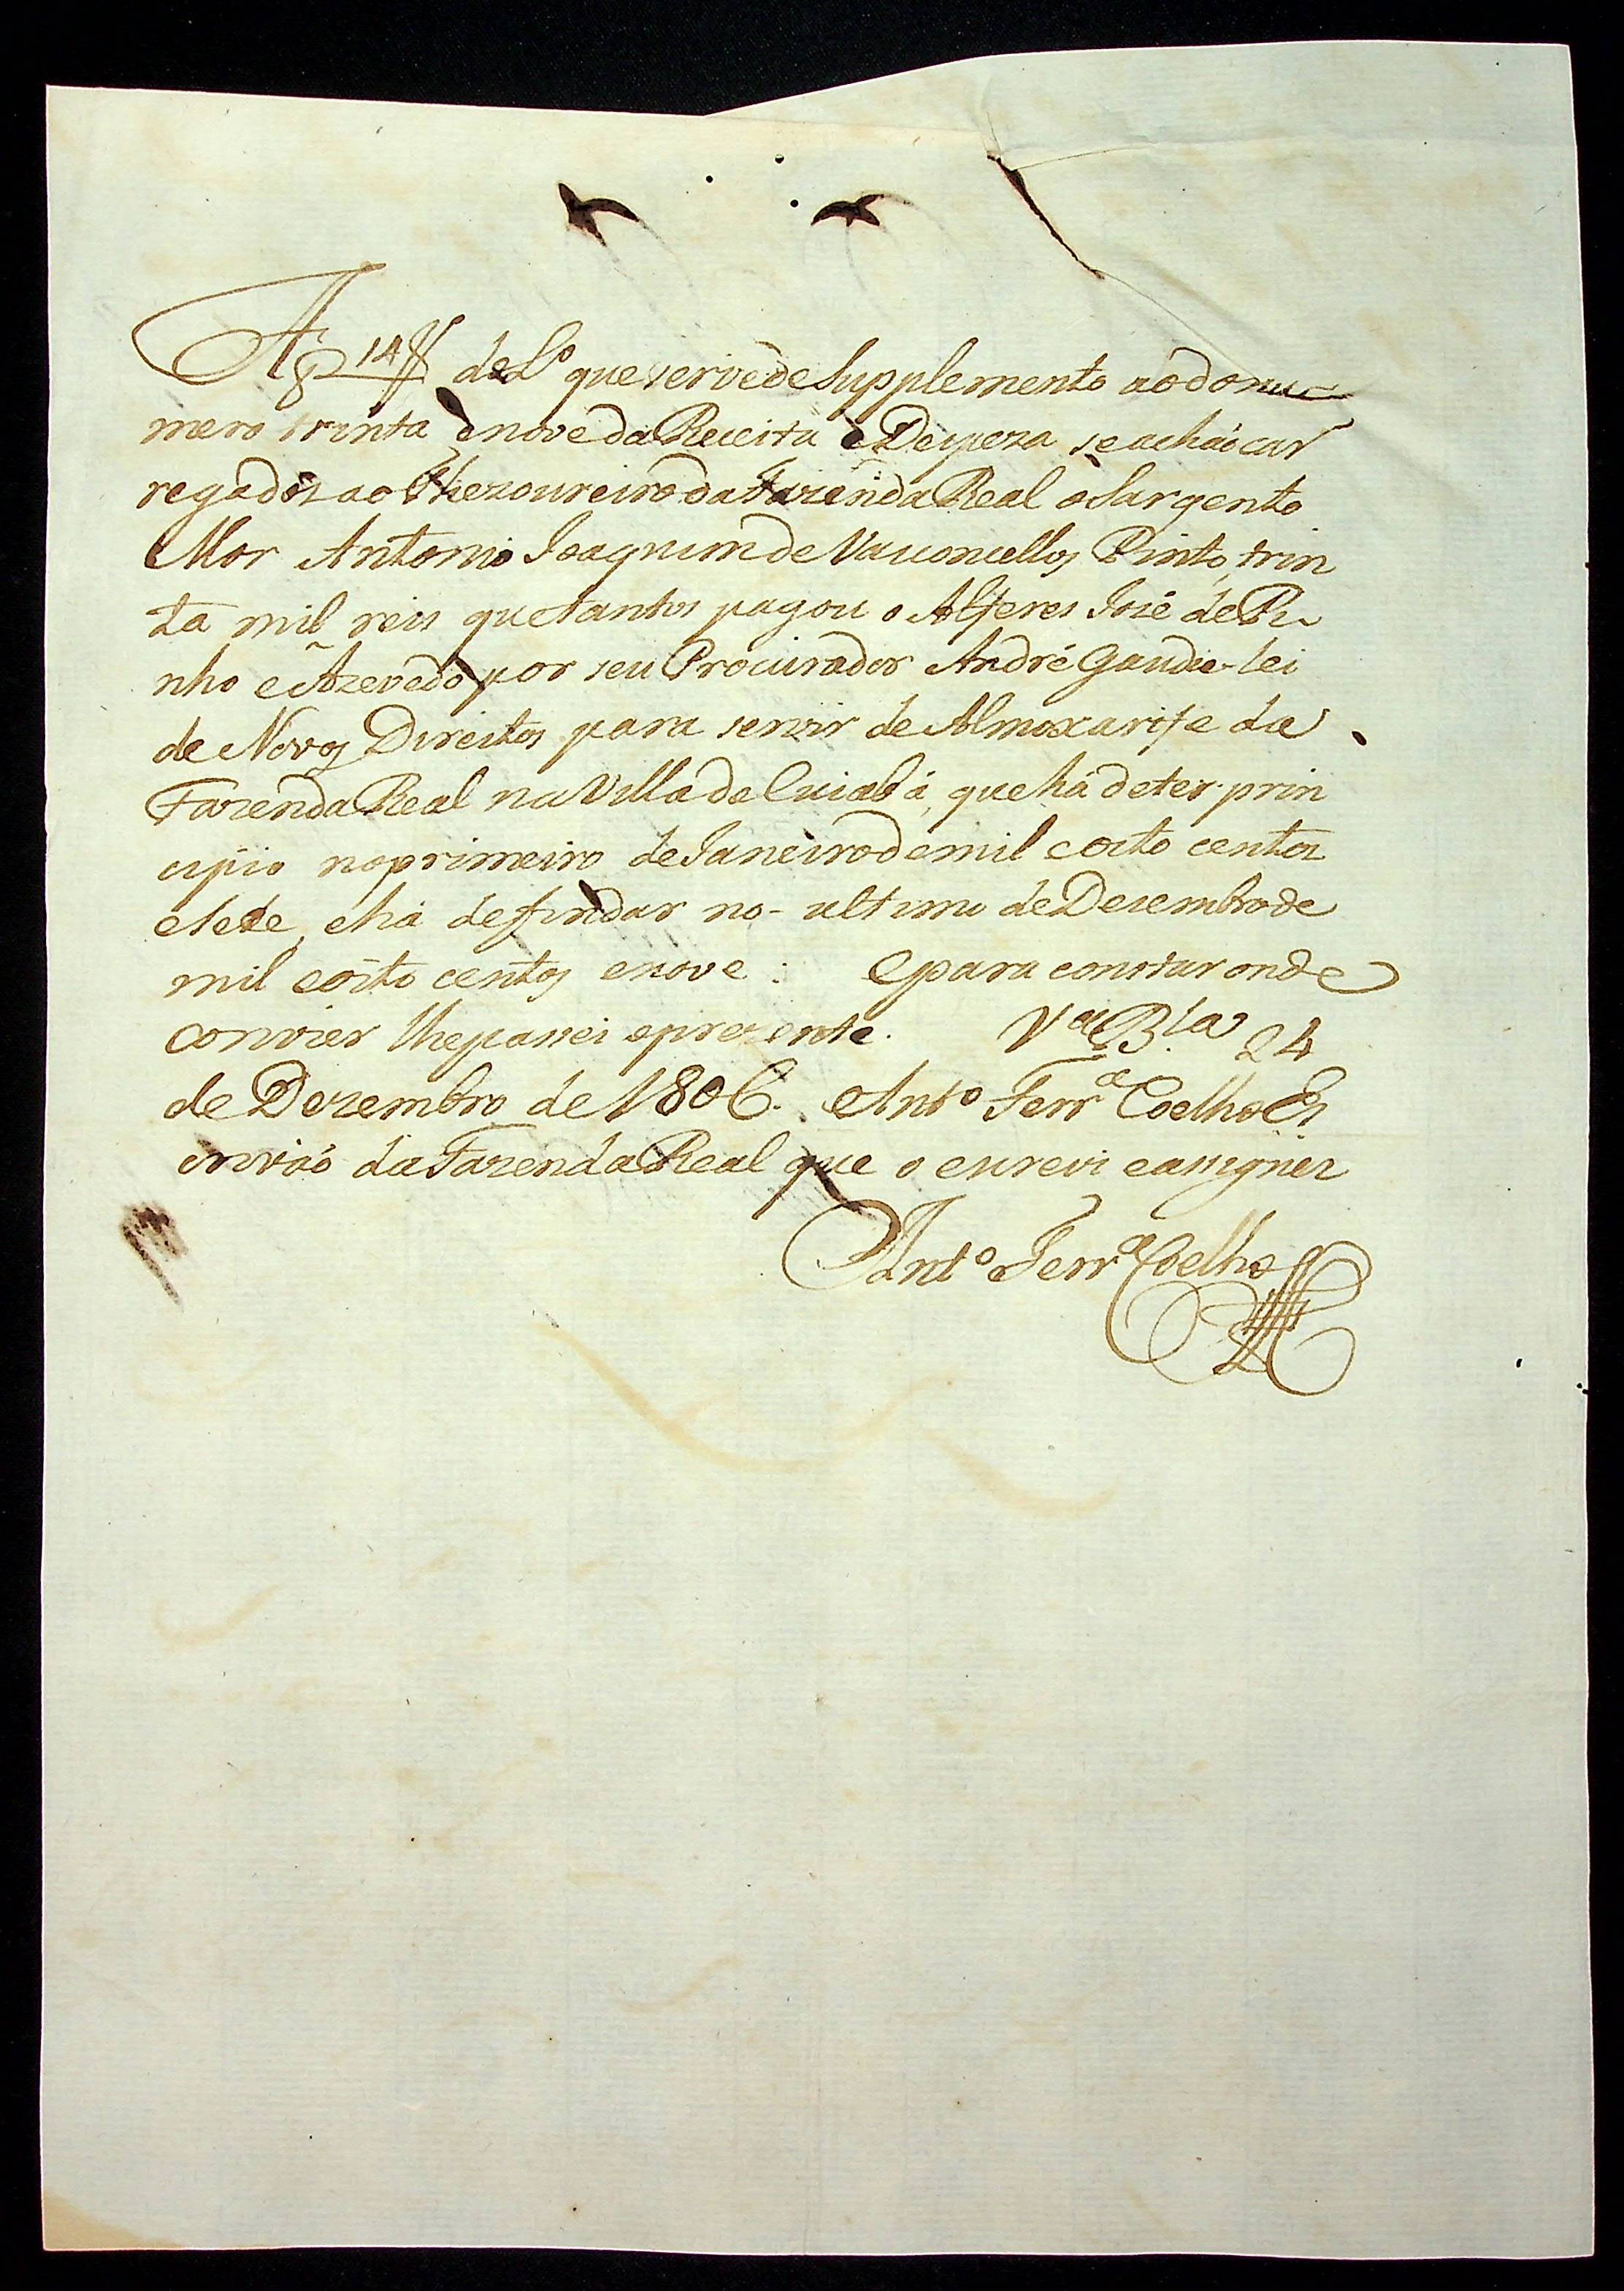 Af 14 do Lº que serve de Supplemento ao do nu-
mero trinta e nove da Receita e Despeza se acháo car
regados ao Thezoureiro da Fazenda Real o Sargento
Mor Antonio Joaquim de Vasconcellos Pinto, trin
ta mil reis que tantos pagou o Alferes José de Pi-
nho e Azevedo por seu Procurador André Gaudie-Lei
de Novos Direitos para servir de Almoxarife da
Fazenda Real na Villa de Cuiabá, que há de ter prin
cipio no primeiro de Janeiro de mil e oito centos
e sete, e há de findar no - ultimo de Desembro de
mil e oito centos e nove: E para constar onde
convier lhe passei a prezente. Vª Bª 24
de Dezembro de 1806. Antº Ferrª Coelho Es
crivão da Fazenda Real que o escrevi e assignei
Antº Ferrª Coelho